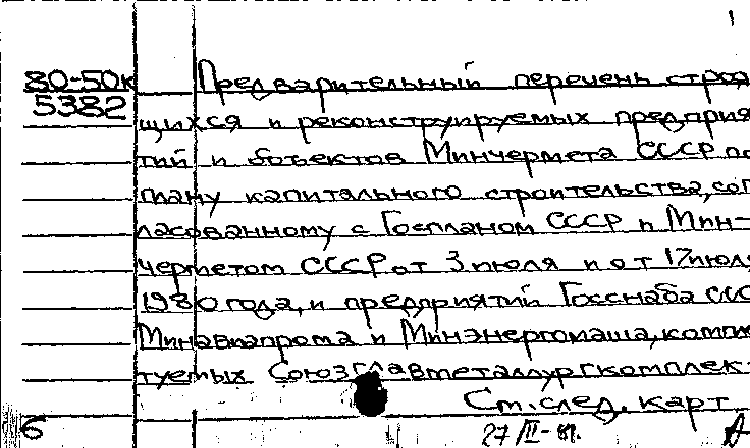 1
80-50к Предварительный перечень строя
5382
щихся и реконструируемых предприя
тий и объектов Минчермета СССР по
плану капитального строительства, сог
ласованному с Госпланом СССР и Мин-
черметом СССР от 3 июля и от 17 июля
1980 года, и предприятий Госснаба ССС
Минавиапрома и Минэнергомаша, компл
туемых Союзглавметаллургкомплек-
См. след. карт
6 27/III-81. А